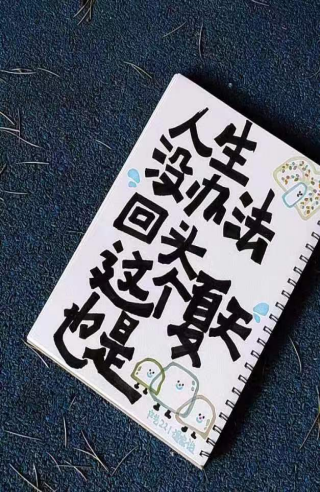 人生
没办法
回头
这个夏天
也是